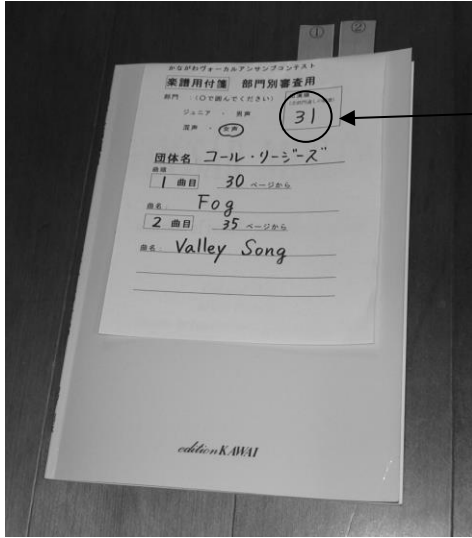 ① ②
かながわヴォーカルアンサンブルコンテスト
楽譜用付箋 部門別審査用
部門 :(○で囲んでください)
ジュニア ・ 男声
混声 ・ 女声
31
団体名 コール・リージーズ
曲順
1 曲目 30 ページから
曲名 Fog
2 曲目 35 ページから
曲名 Valley Song
edition KAWAI